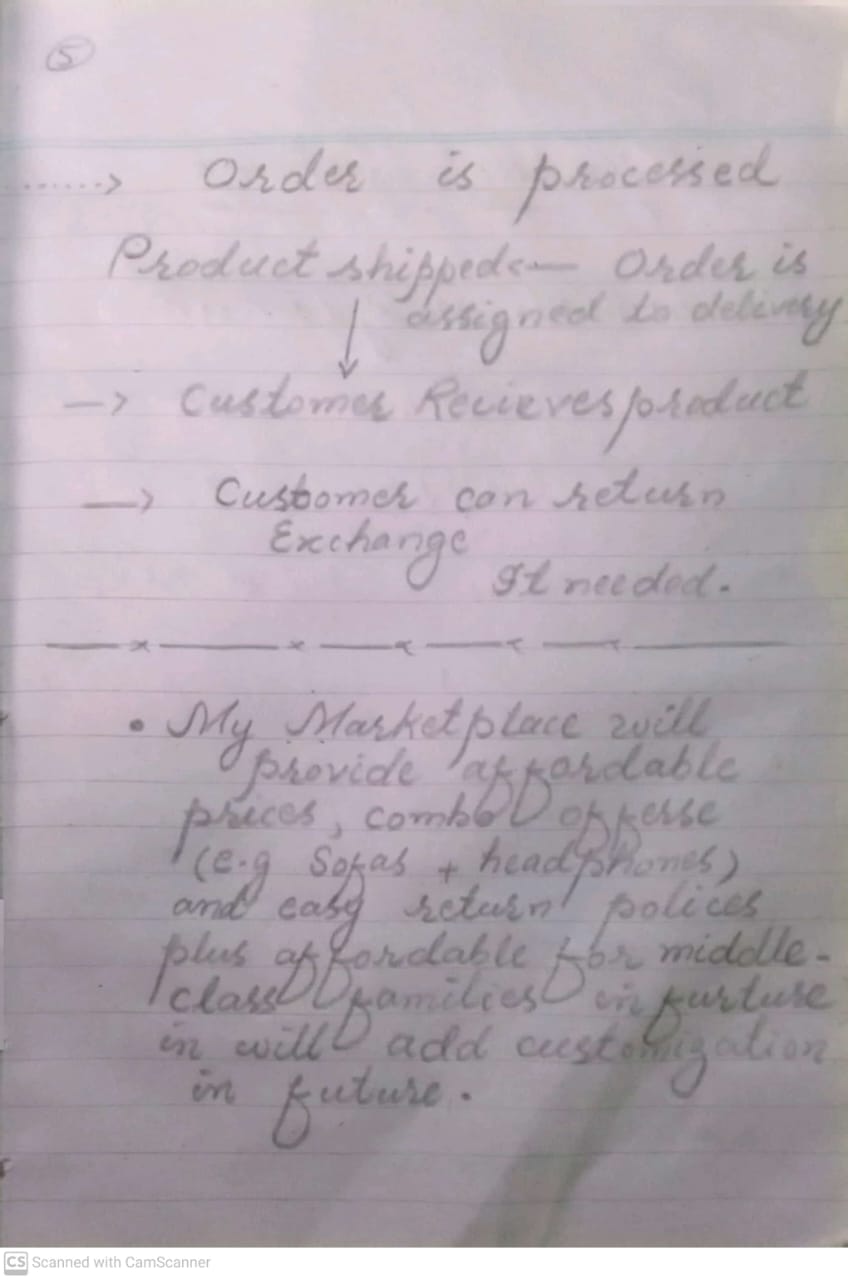 5
......> Order is processed
Product shipped <— Order is
assigned to delivery
↓
—> Customer Recieves product
—> Customer can return
Exchange
If needed.
—×—×—×—×—×—
• My Marketplace will
provide affordable
prices, combo offerse
(e.g Sofas + headphones)
and easy return polices
plus affordable for middle-
class families in furture
in will add customization
in future.
CS Scanned with CamScanner